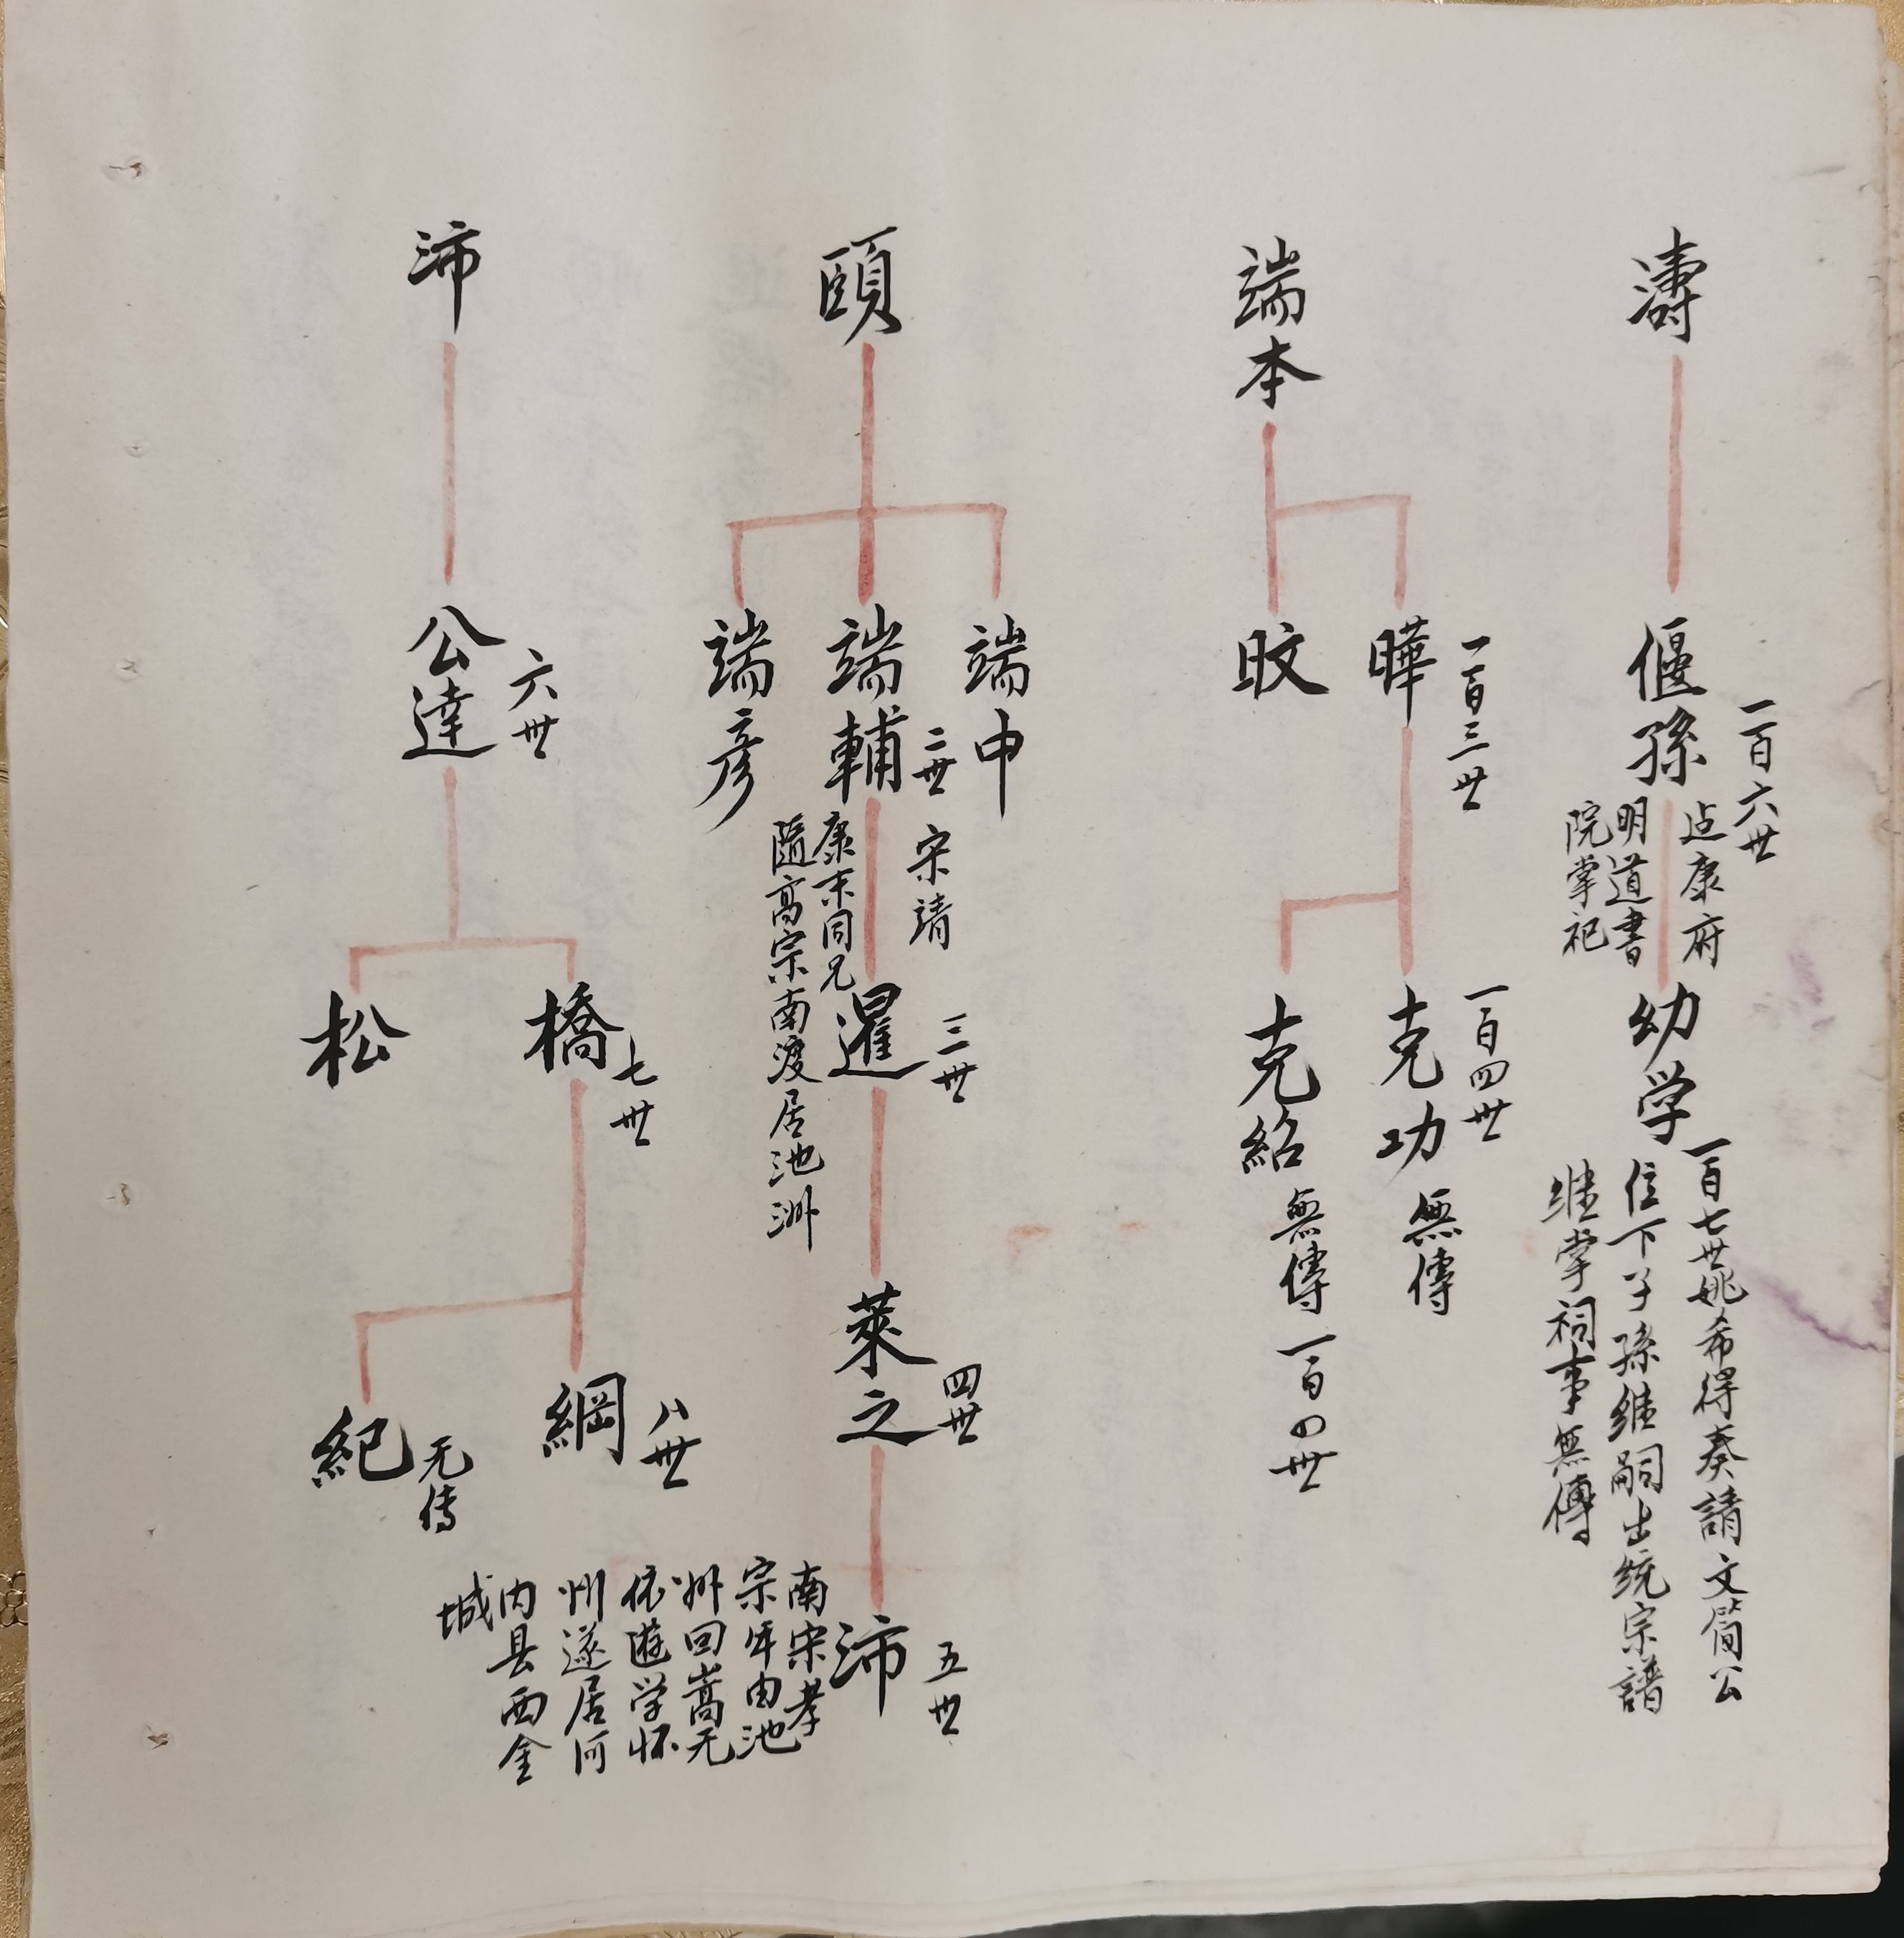 濤
偃孫
一百六世
迠康府
明道書
院掌祀
幼学
一百七世姚希得奏請文简公
位下子孫继嗣出统宗譜
继掌祠事無傳
端本
曄
一百三世
旼
克功
一百四世
無傳
克紹
無傳一百四世
頤
端中
端輔
二世
宋靖
康末同兄
隨高宗南渡居池洲
端彦
暹
三世
萊之
四世
沛
五世
南宋孝
宗年由池
州回嵩无
依遊学怀
州遂居河
内县西金
城
沛
公達
六世
橋
七世
松
綱
八世
紀
无传